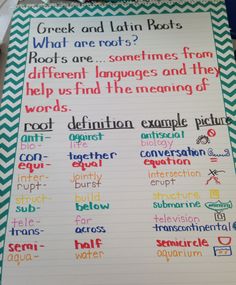 Greek and Latin Roots
What are roots?
Roots are...sometimes from
different languages and they
help us find the meaning of
words.
root definition example picture
anti- against antisocial
bio- life biology
con- together conversation
equi- equal equation
inter- jointly intersection
rupt- burst
struct- build structure
sub- below submarine
tele- far television
trans- across transcontinental
semi- half semicircle
aqua- water aquarium